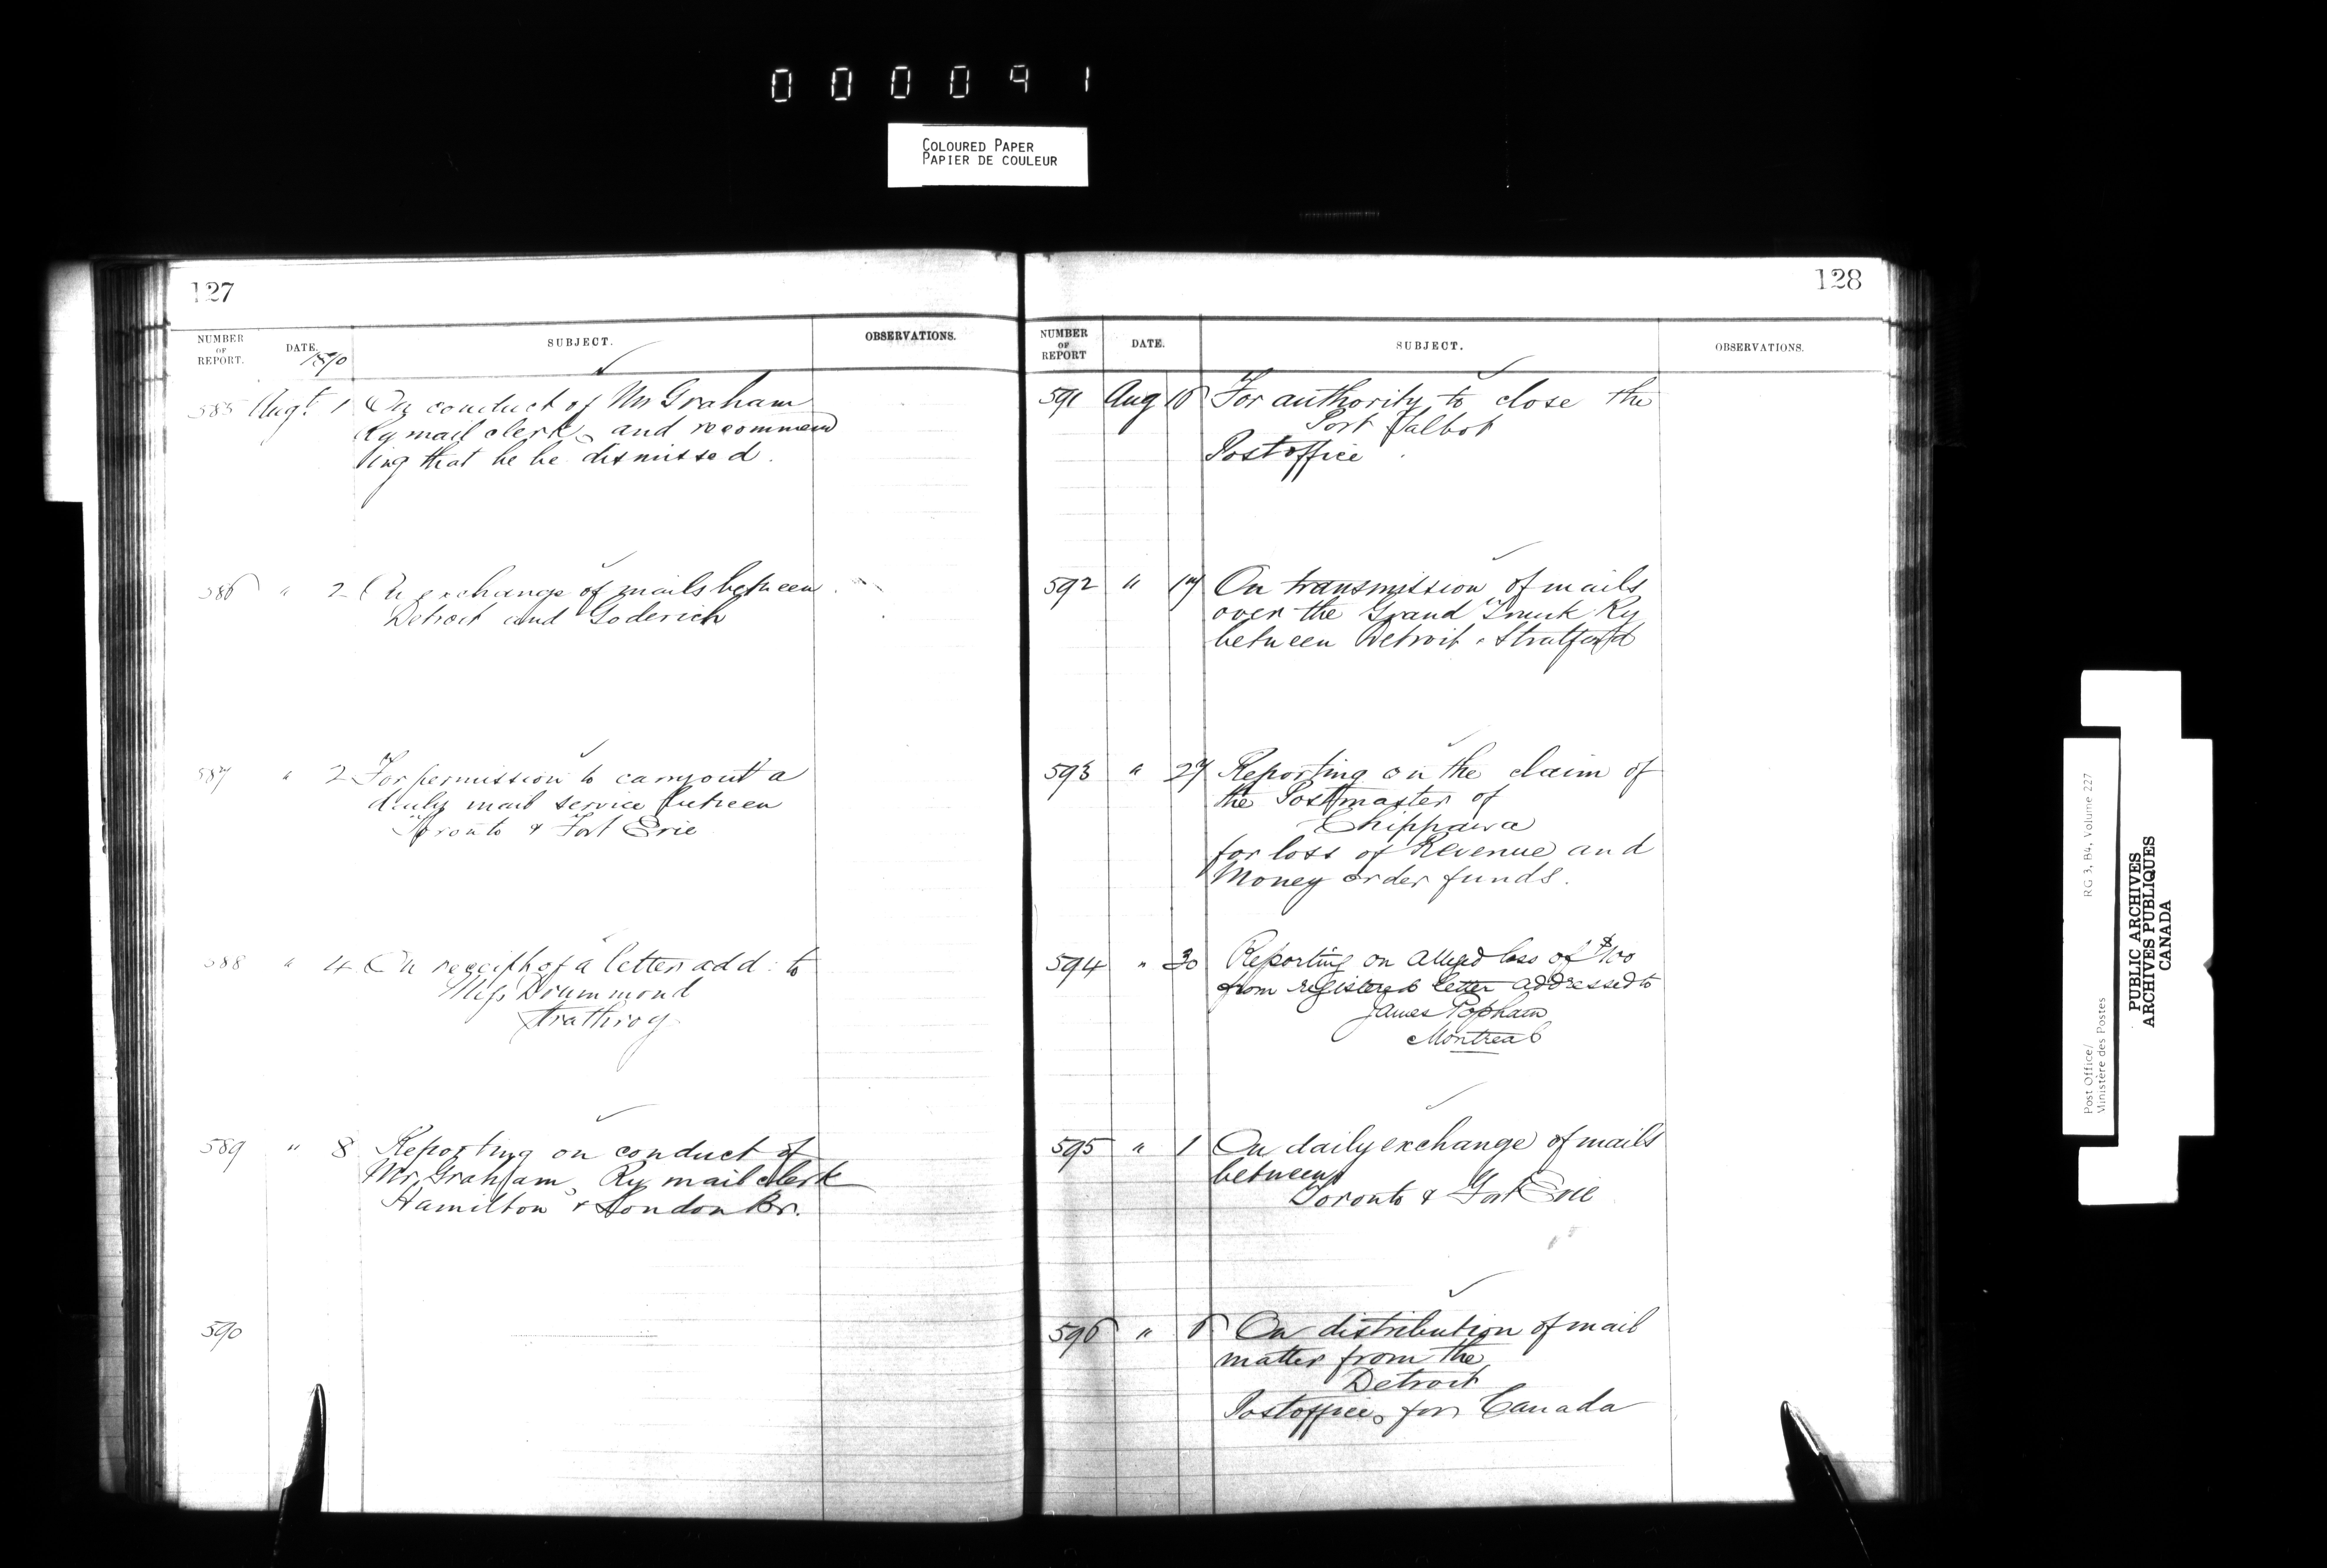 000091
COLOURED PAPER
PAPIER DE COULEUR
127
NUMBER OF REPORT. DATE. SUBJECT. OBSERVATIONS.
1890
585 Augt. 1 On conduct of Mr Graham
Ry mail clerk, and recommend
ing that he be dismissed.
586 " 2 On exchange of mails between
Detroit and Goderich
587 " 2 For permission to carry out a
daily mail service between
Toronto & Fort Erie
588 " 4 On receipt of a letter add: to
Miss Drummond
Strathroy
589 " 8 Reporting on conduct of
Mr. Graham, Ry mail clerk
Hamilton & London Br.
590
128
NUMBER OF REPORT DATE. SUBJECT. OBSERVATIONS.
591 Aug 16 For authority to close the
Port Talbot
Postoffice
592 " 17 On transmission of mails
over the Grand Trunk Ry
between Detroit & Stratford
593 " 27 Reporting on the claim of
the Postmaster of
Chippawa
for loss of Revenue and
Money order funds.
594 " 30 Reporting on alleged loss of $100
from registered letter addressed to
James Popham
Montreal
595 " 1 On daily exchange of mails
between
Toronto & Fort Erie
596 " 6 On distribution of mail
matter from the
Detroit
Postoffice, for Canada
Post Office/ RG 3, B4, Volume 227
Ministère des Postes
PUBLIC ARCHIVES
ARCHIVES PUBLIQUES
CANADA